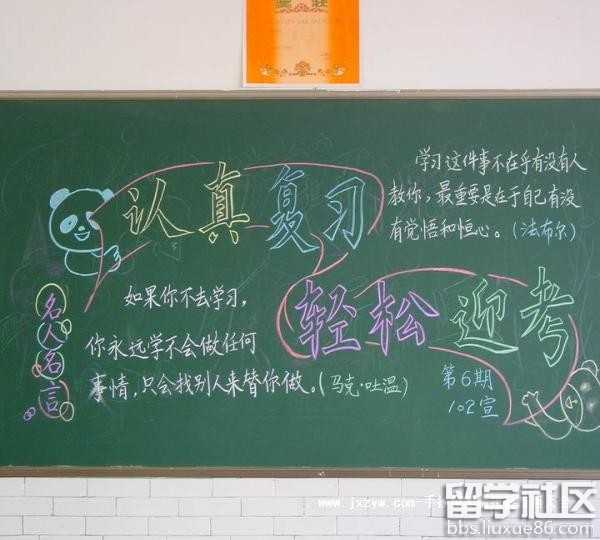 奖状
认真复习
轻松迎考
学习这件事不在乎有没有人
教你，最重要是在于自己有没
有觉悟和恒心。（法布尔）
名人名言
如果你不去学习，
你永远学不会做任何
事情，只会找别人来替你做。（马克·吐温）
第6期
102宣
www.jxzyw.com
留学社区
bbs.liuxue86.com